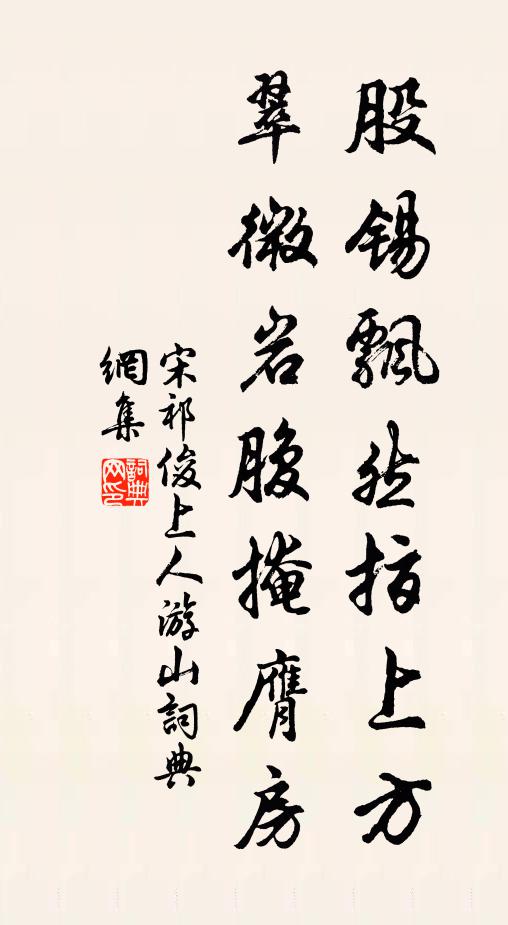 股锡飘然指上方
翠微岩腹掩膺房
宋祁俊上人游山詞典
網集
詞典
网印